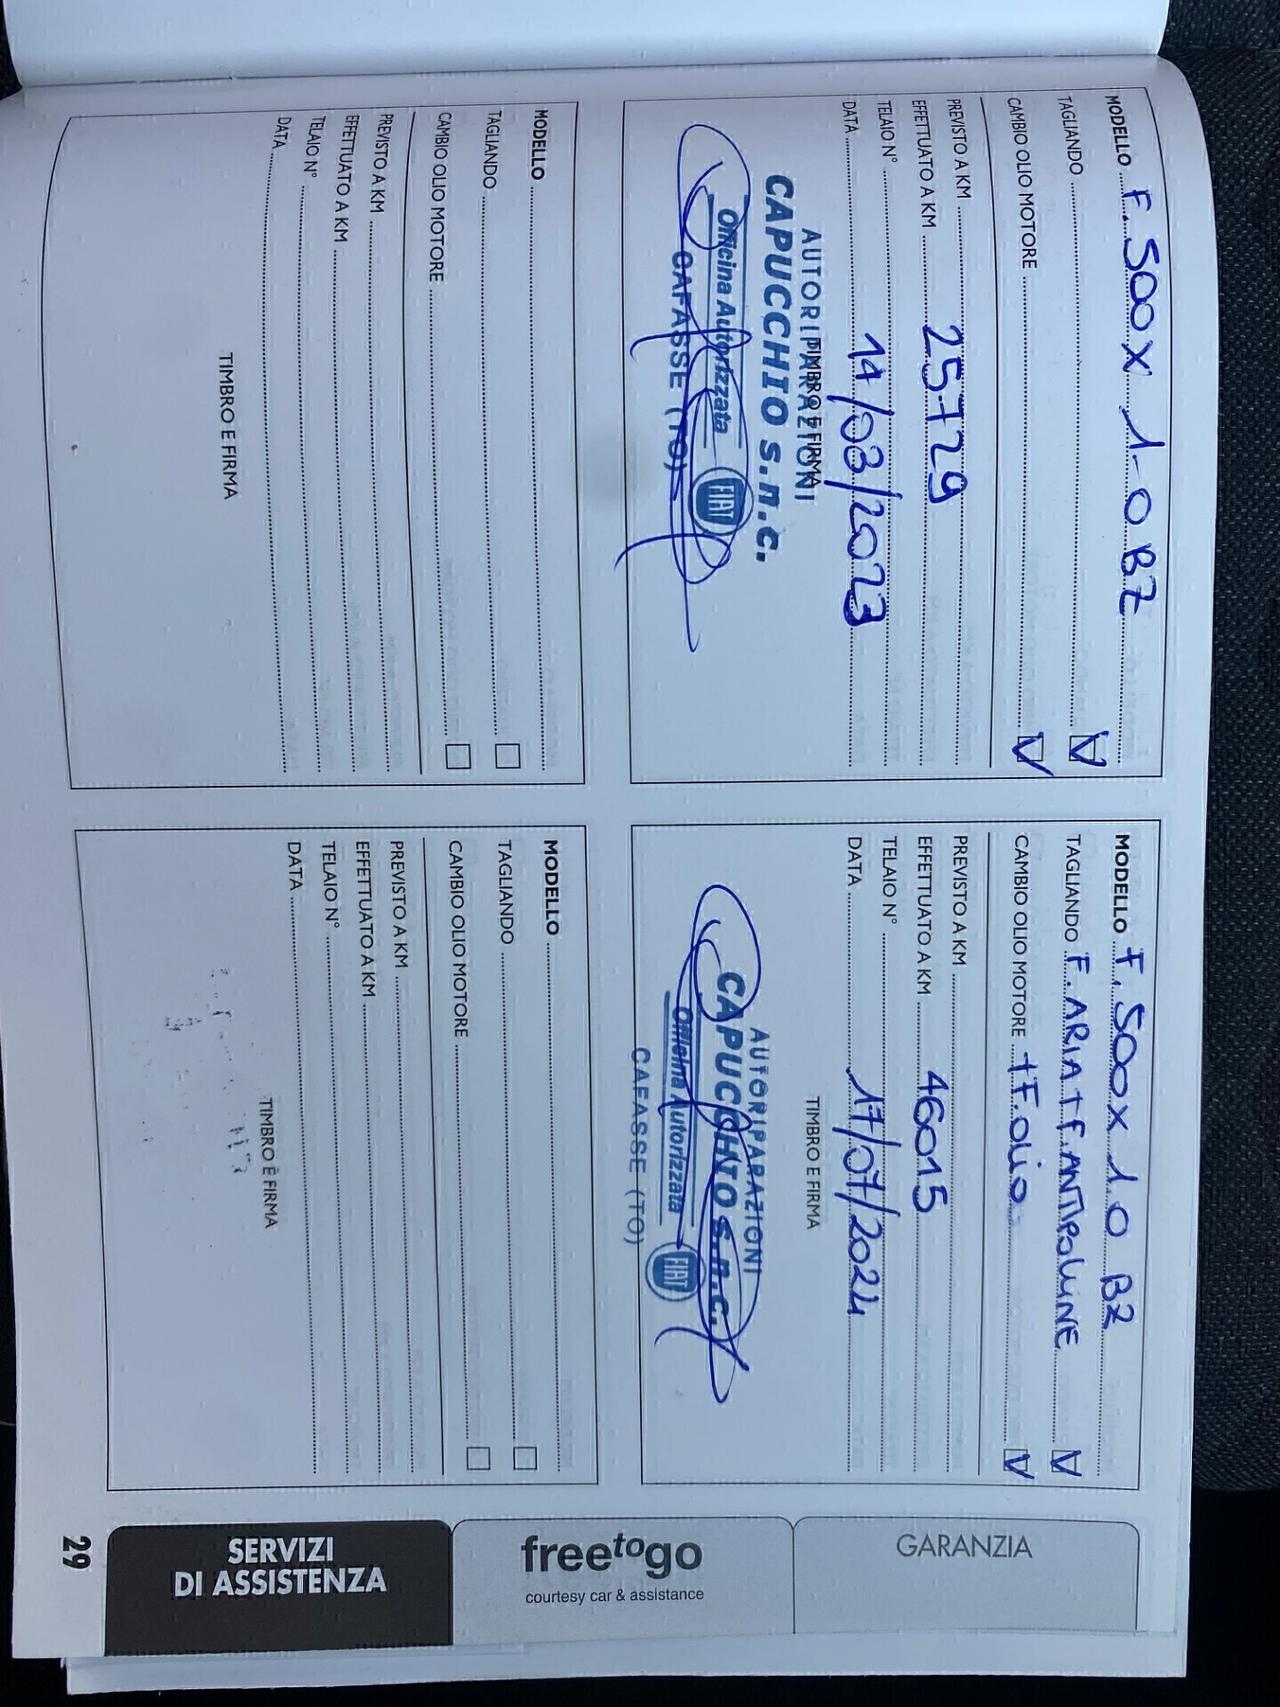 MODELLO F. 500X 1.0 BZ
TAGLIANDO V
CAMBIO OLIO MOTORE V
PREVISTO A KM
EFFETTUATO A KM 25729
TELAIO N°
DATA 14/03/2023
TIMBRO E FIRMA
AUTORIPARAZIONI
CAPUCCHIO s.n.c.
Officina Autorizzata FIAT
CAFASSE (TO)
MODELLO F. 500X 1.0 BZ
TAGLIANDO F. ARIA + F. ANTIPOLLINE V
CAMBIO OLIO MOTORE + F. OLIO V
PREVISTO A KM
EFFETTUATO A KM 46015
TELAIO N°
DATA 17/07/2024
TIMBRO E FIRMA
AUTORIPARAZIONI
CAPUCCHIO s.n.c.
Officina Autorizzata FIAT
CAFASSE (TO)
MODELLO
TAGLIANDO
CAMBIO OLIO MOTORE
PREVISTO A KM
EFFETTUATO A KM
TELAIO N°
DATA
TIMBRO E FIRMA
MODELLO
TAGLIANDO
CAMBIO OLIO MOTORE
PREVISTO A KM
EFFETTUATO A KM
TELAIO N°
DATA
TIMBRO E FIRMA
GARANZIA
freetogo
courtesy car & assistance
SERVIZI
DI ASSISTENZA
29